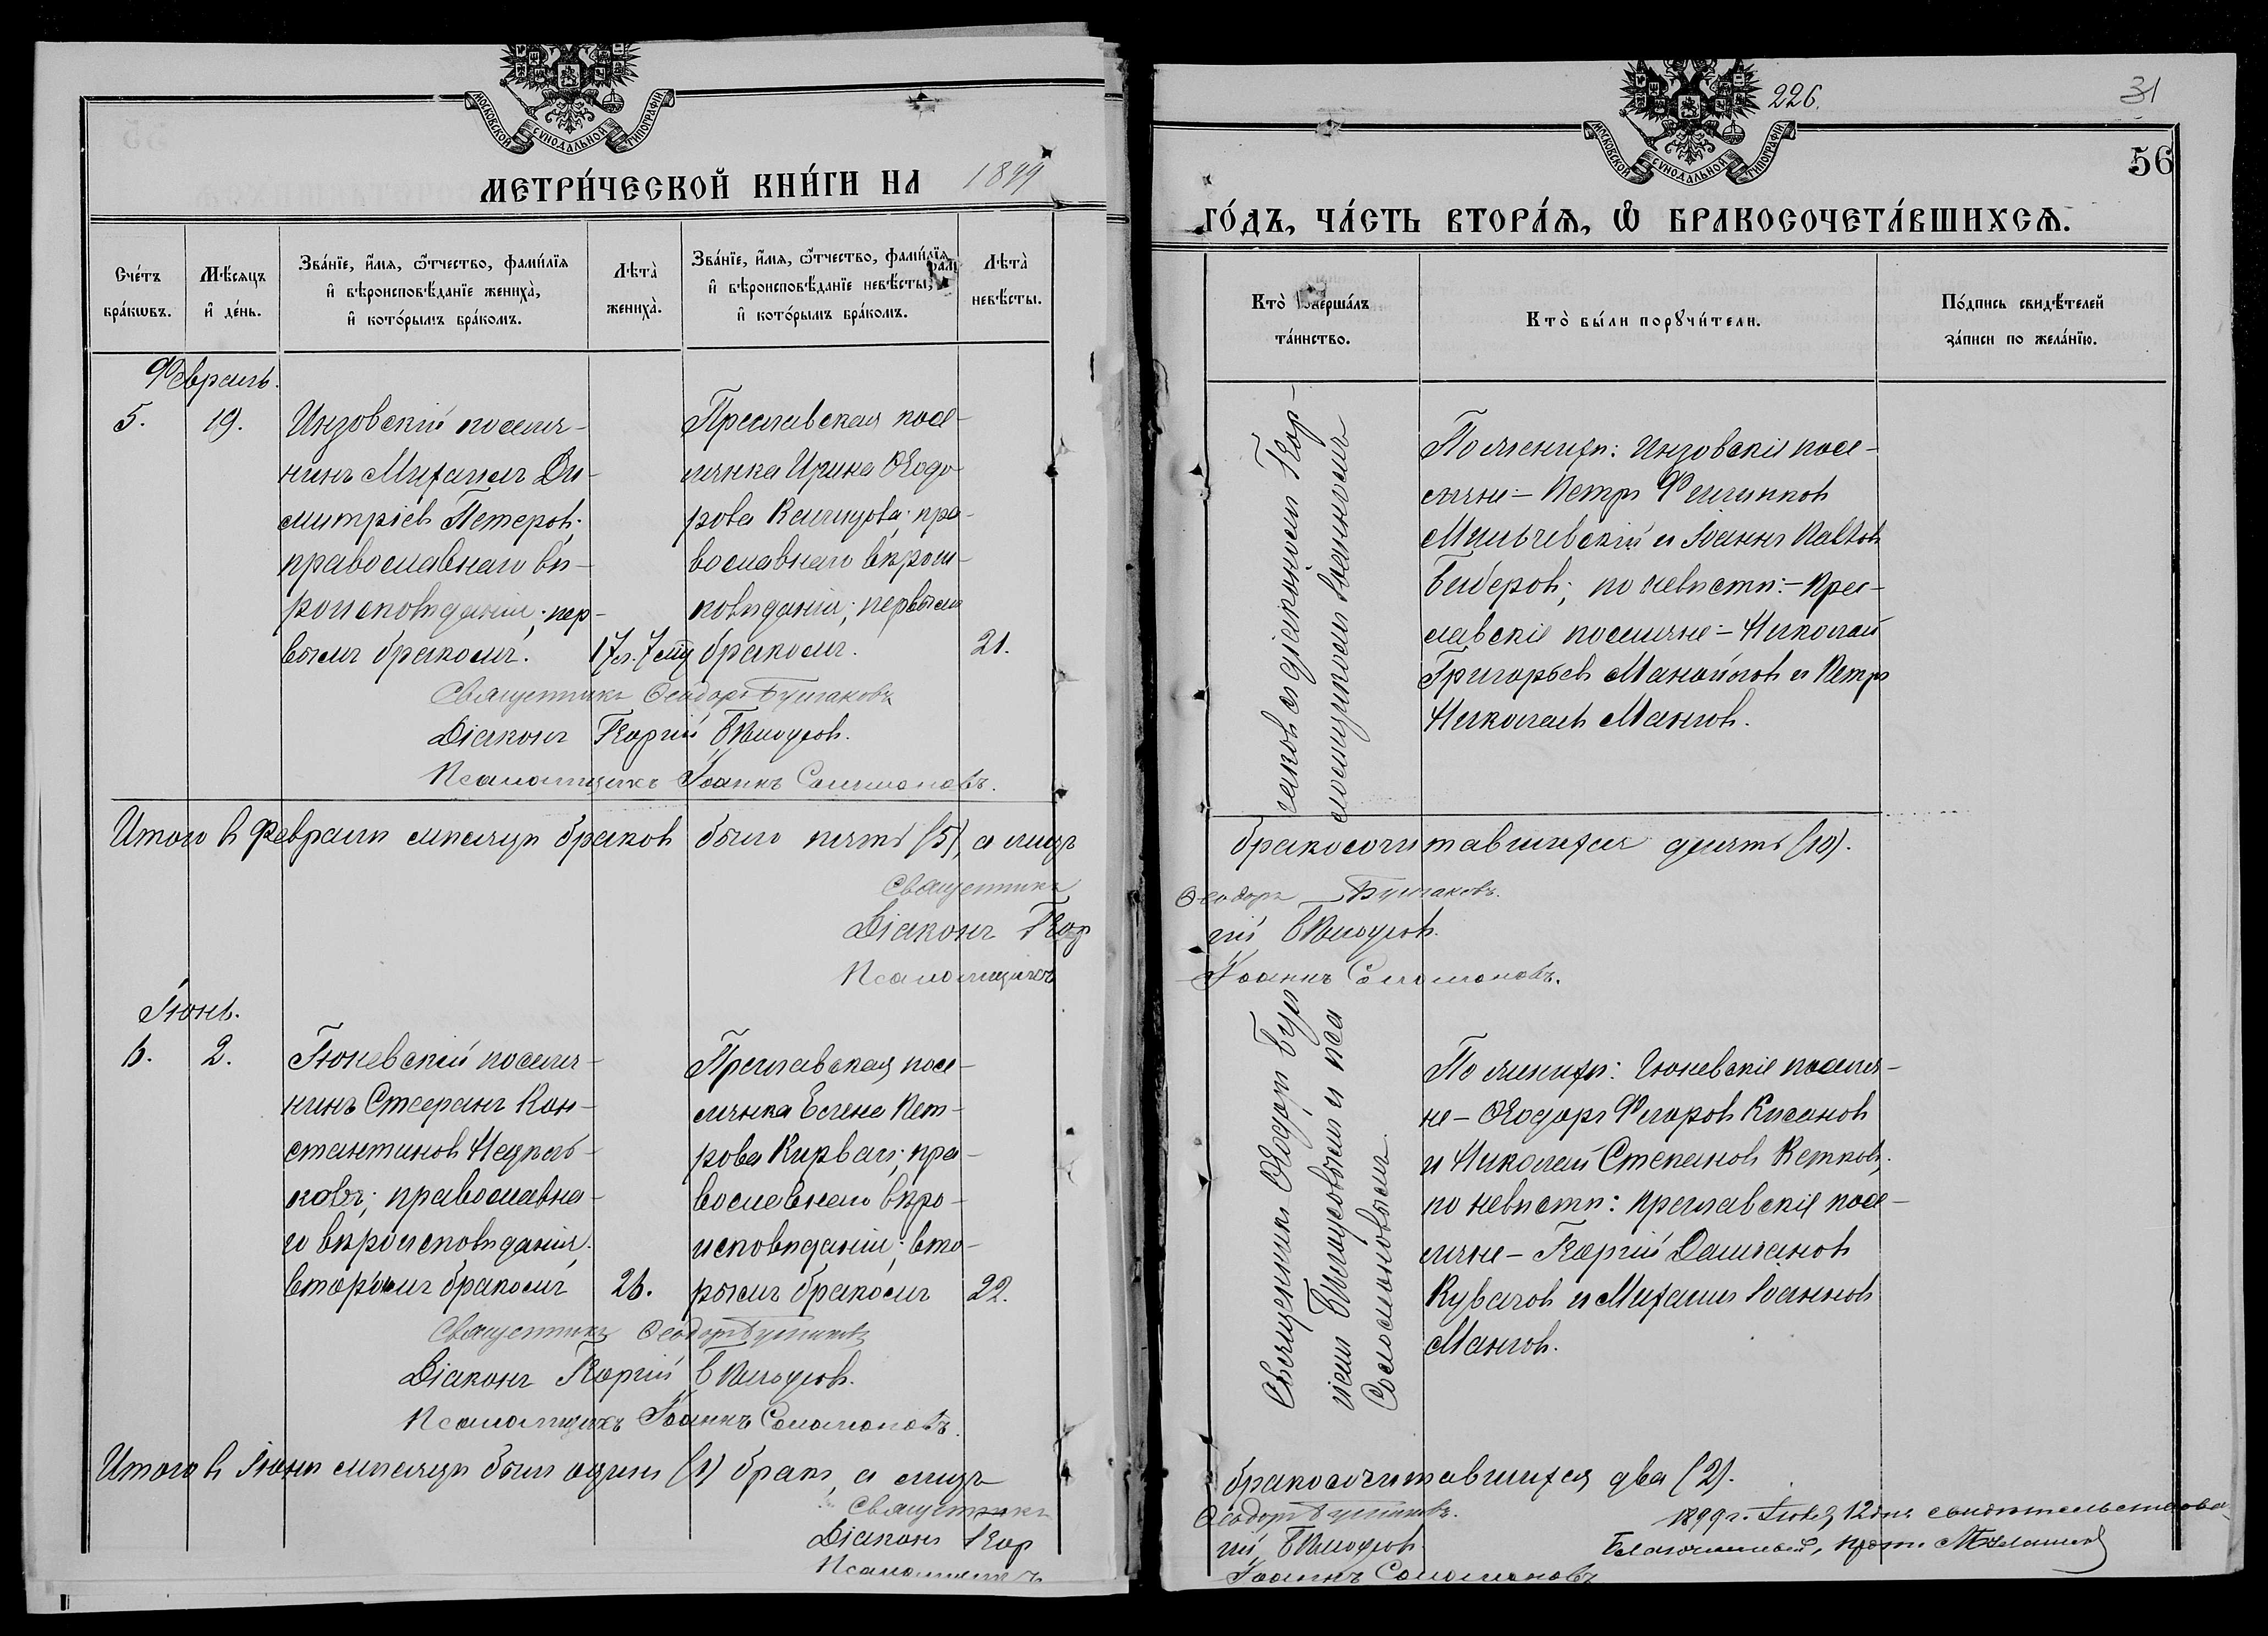 МОСКОВСКОЙ СѴНОДАЛЬНОЙ ТИПОГРАФІИ
МЕТРИ́ЧЕСКОЙ КНИ́ГИ НА 1899
Сче́тъ бра́кωвъ.
Мѣ́сяцъ и҆ де́нь.
Зва́нїе, и҆́мѧ, ѻ҆́тчество, фами́лїѧ
и҆ вѣроисповѣ́данїе жениха̀,
и҆ кото́рымъ бра́комъ.
Лѣта̀ жениха̀.
Зва́нїе, и҆́мѧ, ѻ҆́тчество, фами́лїѧ
и҆ вѣроисповѣ́данїе невѣ́сты,
и҆ кото́рымъ бра́комъ.
Лѣта̀ невѣ́сты.
Февраль.
5. 19.
Инзовскій поселя-
нинъ Михаилъ Ди-
митріевъ Петеровъ;
православнаго вѣ-
роисповѣданія; пер-
вымъ бракомъ.
17 л. 7 мц
Преславская посе-
лянка Ирина Ѳеодо
рова; пра-
вославнаго вѣроис-
повѣданія; первымъ
бракомъ.
21.
Священникъ Ѳеодоръ
Діаконъ Георгій
Псаломщикъ Іоаннъ Соломоновъ.
Итого въ Февралѣ мѣсяцѣ браковъ было пять (5), а лицъ
Священникъ
Діаконъ Геор
Псаломщикъ
Іюнь.
6. 2.
Гюневскій поселя-
нинъ Стефанъ Кон-
стантиновъ Недѣль-
ковъ; православна-
го вѣроисповѣданія;
вторымъ бракомъ
26.
Преславская посе-
лянка Елена Пет-
рова; пра-
вославнаго вѣро-
исповѣданія; вто-
рымъ бракомъ
22.
Священникъ Ѳеодоръ
Діаконъ Георгій
Псаломщикъ Іоаннъ Соломоновъ.
Итого въ Іюнѣ мѣсяцѣ былъ одинъ (1) бракъ, а лицъ
Священникъ
Діаконъ Геор
Псаломщикъ
226.
31
56
МОСКОВСКОЙ СѴНОДАЛЬНОЙ ТИПОГРАФІИ
ГО́ДЪ, ЧА́СТЬ ВТОРА́Ѧ, Ѡ҆ БРАКОСОЧЕТА́ВШИХСѦ.
Кто̀ соверша́лъ
та́инство.
Кто̀ бы́ли порꙋчи́тели.
По́дпись свидѣ́телей
за́писи по жела́нїю.
діакономъ Геор-
Іоанномъ
По женихѣ: Инзовскіе посе-
ляне - Петръ Филипповъ
Мильчевскій и Іоаннъ Павловъ
Биберовъ; по невѣстѣ: - Прес-
лавскіе поселяне - Николай
Григорьевъ Манойловъ и Петръ
Николаевъ Манговъ.
бракосочетавшихся десять (10).
Ѳеодоръ
гій
Іоаннъ Соломоновъ.
Священникъ Ѳеодоръ
и пса
Соломоновымъ
По женихѣ: Гюневскіе поселя-
не - Ѳеодоръ Егоровъ Кисановъ
и Николай Степановъ Петковъ;
по невѣстѣ: Преславскіе посе-
ляне - Георгій Даміановъ
и Михаилъ Іоанновъ
Манговъ.
бракосочетавшихся два (2).
Ѳеодоръ
гій
Іоаннъ Соломоновъ
1899 г. 12 дня свидѣтельствова
Благочинный,